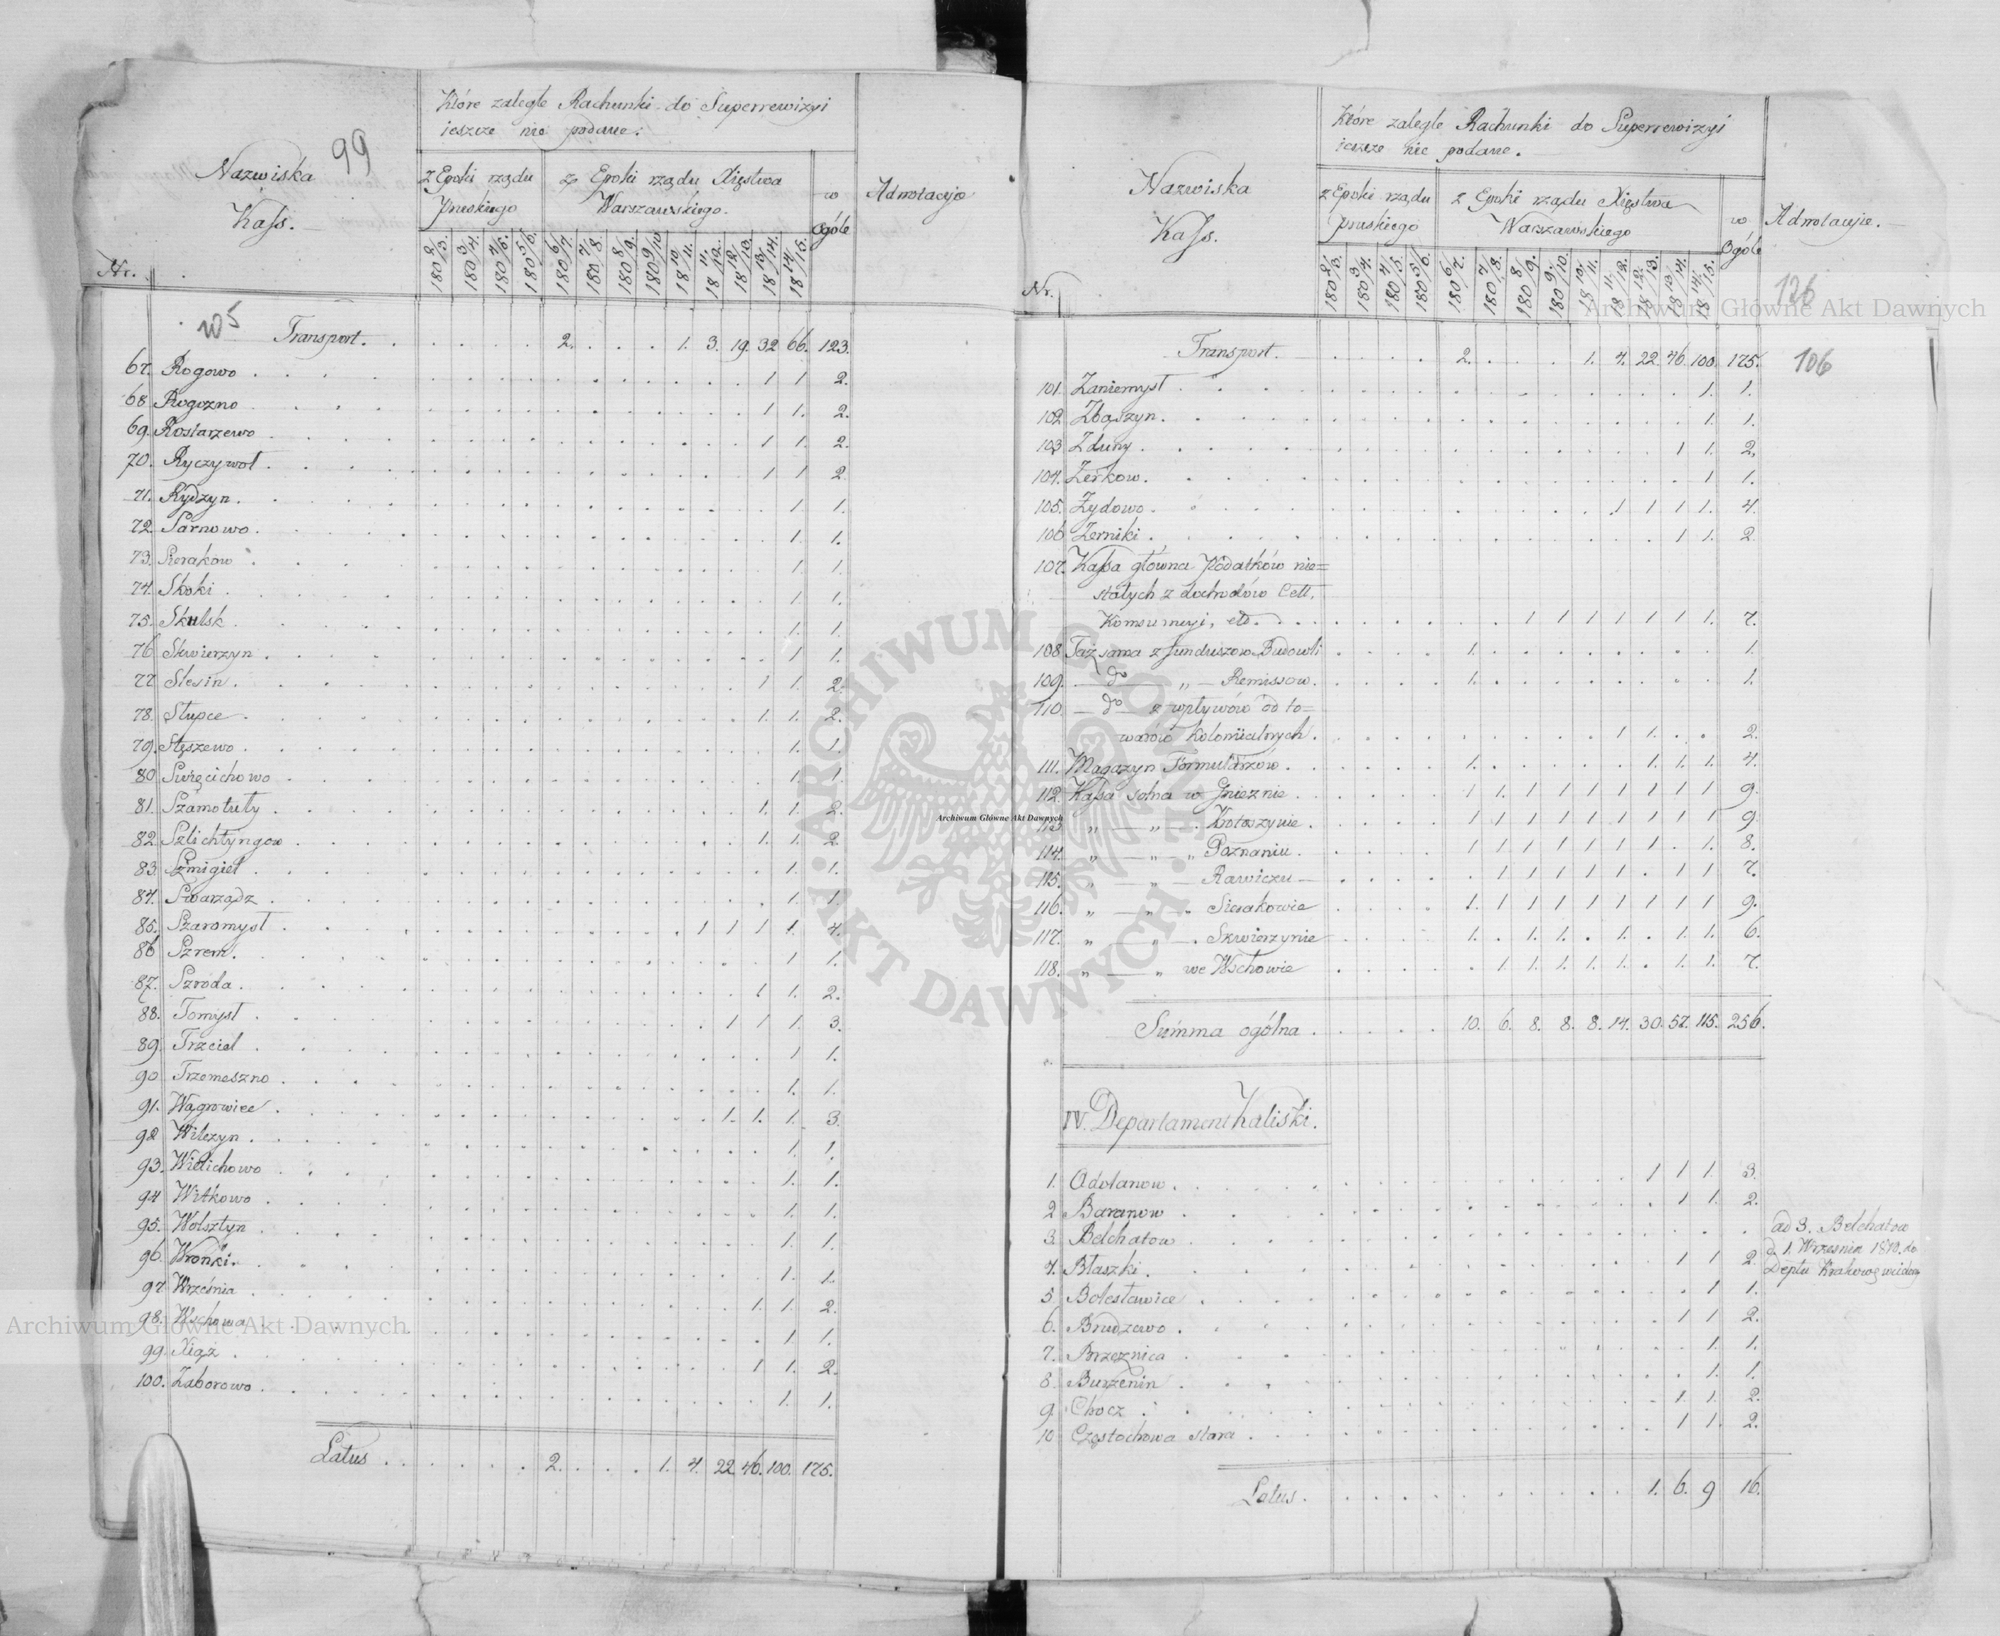 99
Nazwiska
Kass.
Nr.
Które zaległe Rachunki do Superrewizyi
ieszcze nie podane.
z Epoki rządu
Pruskiego
z Epoki rządu Xięstwa
Warszawskiego.
w
Ogóle
Adnotacyje
180 2/3. 180 3/4. 180 4/5. 180 5/6. 180 6/7. 180 7/8. 180 8/9. 180 9/10 18 10/11. 18 11/12. 18 12/13. 18 13/14. 18 14/15.
105
Transport. 2. 1. 3. 19. 32 66. 123.
67. Rogowo 1 1 2.
68 Rogozno 1 1. 2.
69. Rostarzewo 1 1. 2.
70. Ryczywoł 1 1 2
71. Rydzyn. 1. 1.
72. Sarnowo. 1. 1.
73. Sierakow 1. 1.
74. Skoki 1. 1.
75. Skulsk. 1. 1.
76 Skwierzyn 1 1.
77 Slesin. 1 1. 2.
78. Słupce. 1. 1. 2.
79. Stęszewo 1. 1.
80 Swięcichowo 1. 1.
81. Szamotuły 1. 1. 2.
82. Szlichtyngow 1. 1. 2
83. Szmigiel 1. 1.
84. Swarządz 1. 1.
85. Szaromysl 1 1 1 1. 4.
86 Szrem. 1. 1.
87. Szroda. 1 1. 2.
88. Tomysl 1 1 1. 3.
89. Trzciel 1 1.
90 Trzemeszno 1. 1.
91. Wągrowiec 1. 1. 1. 3.
92 Wilczyn 1. 1.
93. Wielichowo 1. 1.
94 Witkowo 1. 1.
95. Wolsztyn 1. 1.
96. Wronki. 1. 1.
97 Września 1. 1. 2.
98. Wschowa 1 1.
99 Xiąż 1 1. 2.
100. Zaborowo 1. 1.
Latus 2. 1. 4. 22 46. 100. 175.
Nazwiska
Kass.
Nr.
Które zaległe Rachunki do Superrewizyi
ieszcze nie podane.
z Epoki rządu
pruskiego
z Epoki rządu Xięstwa
Warszawskiego
w
Ogóle
Adnotacyje.
180 2/3. 180 3/4. 180 4/5. 180 5/6. 180 6/7. 180 7/8. 180 8/9. 180 9/10. 18 10/11. 18 11/12. 18 12/13. 18 13/14. 18 14/15.
126
106
Transport. 2. 1. 4. 22. 46. 100. 175.
101. Zaniemysl 1. 1.
102. Zbąszyn. 1. 1.
103 Zduny 1 1. 2.
104. Zerkow. 1 1.
105. Zydowo 1 1 1 1. 4.
106 Zerniki 1 1. 2
107. Kassa główna Podatków nie=
stałych z dochodów Cell,
Konsumcyi, etd. 1 1 1 1 1 1 1. 7.
108 Taż sama z funduszow Budowli 1. 1.
109. — do — „ — Remissow. 1. 1.
110 — do — z wpływów od to=
warów kolonialnych. 1 1. 2.
111. Magazyn Formularzów 1. 1. 1. 1 4.
112 Kassa solna w Gnieznie 1 1. 1 1 1 1 1 1 1 9.
113 „ — „ — Krotoszynie 1 1 1 1 1 1 1 1 1 9
114. „ — „ „ Poznaniu. 1 1 1 1 1 1 1 1. 8.
115. „ — „ — Rawiczu — 1 1 1 1 1 1 1 7.
116. „ — „ „ Sierakowie 1. 1 1 1 1 1 1 1 1 9.
117. „ „ — Skwierzynie 1. 1. 1. 1. 1. 1. 6.
118. „ — „ we Wschowie 1. 1. 1. 1. 1. 1. 1. 7.
Summa ogólna 10. 6. 8. 8. 8. 14. 30. 57. 115. 256.
IV. Departament Kaliski.
1. Adolanow 1 1 1. 3.
2 Baranow 1 1. 2.
3. Belchatow
ad 3. Belchatow
d. 1. Wrzesnia 1810. do
Deptu
4. Błaszki. 1 1 2
5. Bolesławice 1 1.
6. Brudzewo 1 1 2.
7. Brzeznica 1. 1.
8. Burzenin 1. 1.
9. Chocz 1 1. 2.
10 Częstochowa stara 1 1. 2.
Latus. 1. 6. 9 16.
Archiwum Główne Akt Dawnych
Archiwum Główne Akt Dawnych
Archiwum Główne Akt Dawnych
ARCHIWUM GŁÓWNE · AKT DAWNYCH ·